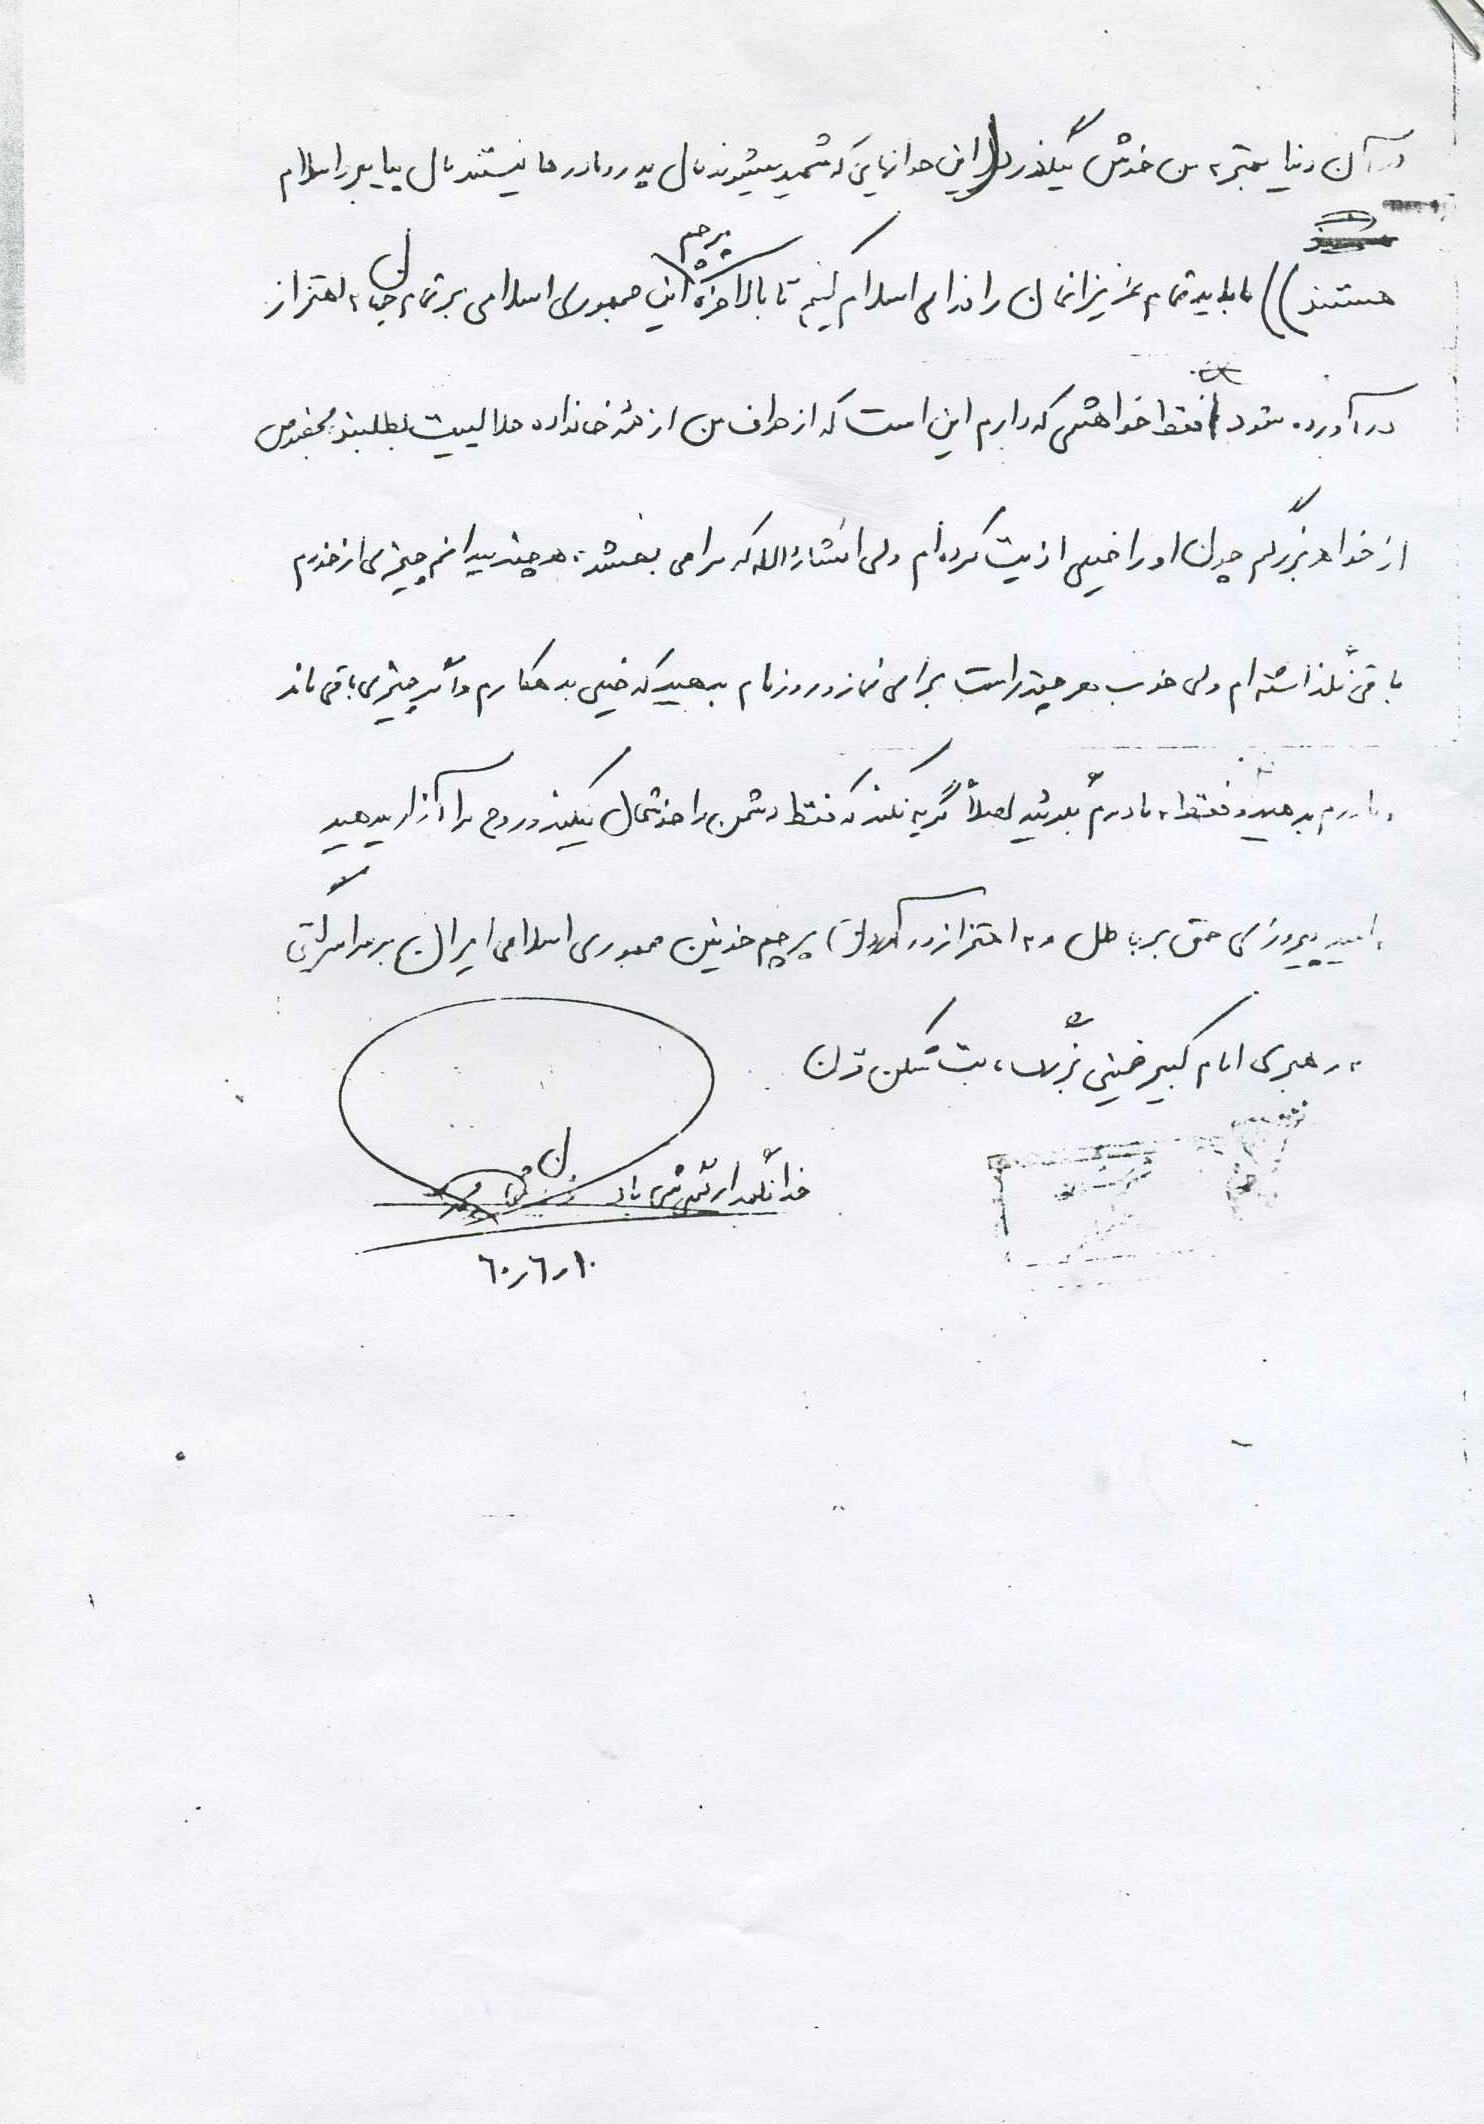 در آن دنیا بهتر به من خوش میگذرد این جوانهایی که شهید میشوند مال پدر و مادرها نیستند مال پیامبر اسلام
هستند)) ما باید تمام عزیزانمان را فدای اسلام کنیم تا بالاخره پرچم این جمهوری اسلامی بر تمام جهان به اهتزاز
در آورده شود فقط خواهشی که دارم این است که از طرف من از همه خانواده حلالیت بطلبند بخصوص
از خواهر بزرگم چون او را خیلی اذیت کرده‌ام ولی انشاءالله که مرا می بخشد، هر چند میدانم چیزی از خودم
باقی نگذاشته ام ولی خوب هر چقدر است برای نماز و روزه‌ام بدهید که خیلی بدهکارم و اگر چیزی باقی ماند
به مادرم بدهید و فقط به مادرم بگوئید اصلاً گریه نکند که فقط دشمن را خوشحال میکند و روح مرا آزار میدهید
به امید پیروزی حق بر باطل و به اهتزاز در آمدن پرچم خونین جمهوری اسلامی ایران بر سراسر گیتی
به رهبری امام کبیر خمینی بزرگ، بت شکن قرن
خدا نگهدار همگی شما باد
۶۰/۶/۱۰